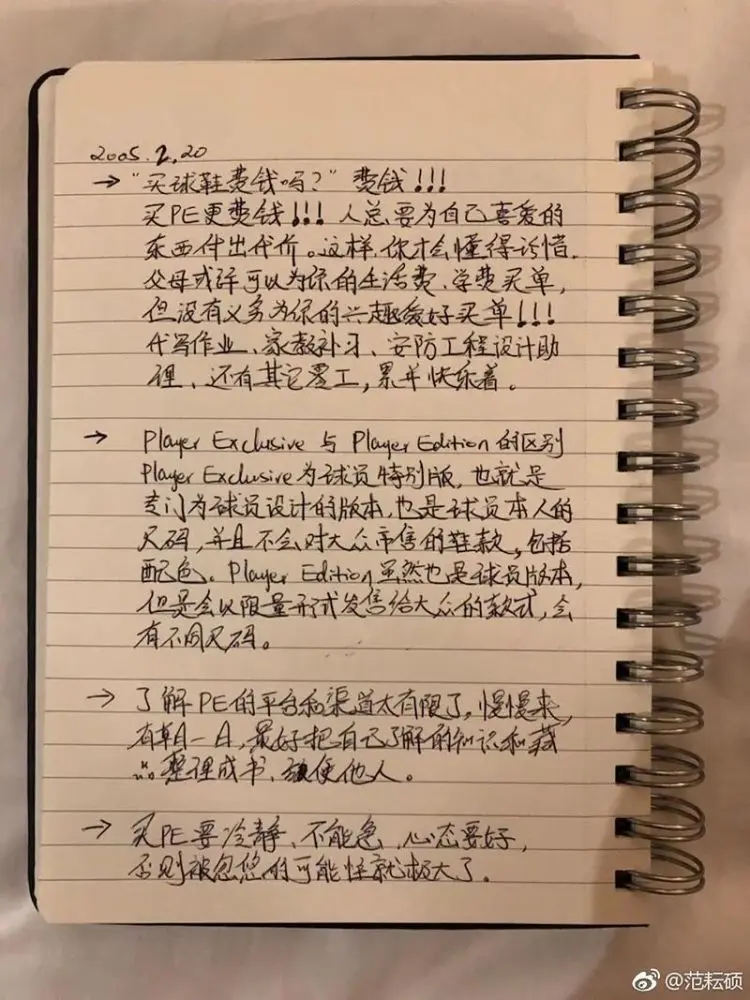 2005.2.20
→ "买球鞋费钱吗？" 费钱!!!
买PE更费钱!!! 人总要为自己喜爱的
东西付出代价。这样，你才会懂得珍惜.
父母或许可以为你的生活费、学费买单，
但没有义务为你的兴趣爱好买单!!!
代写作业、家教补习、安防工程设计助
理、还有其它零工，累并快乐着。
→ Player Exclusive 与 Player Edition 的区别
Player Exclusive 为球员特别版，也就是
专门为球员设计的版本，也是球员本人的
尺码，并且不会对大众市售的鞋款，包括
配色。Player Edition虽然也是球员版本，
但是会以限量形式发售给大众的款式，会
有不同尺码。
→ 了解PE的平台和渠道太有限了，慢慢来，
有朝一日，最好把自己了解的知识和藏
整理成书、便他人。
→ 买PE要冷静、不能急，心态要好，
否则被忽悠的可能性就极大了。
@范耘硕